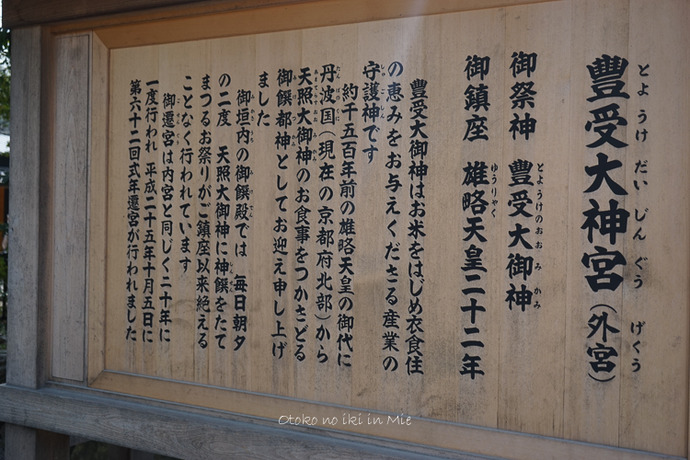 豐受大神宮（外宮）
とよ うけ だい じん ぐう げくう
御祭神 豐受大御神
とようけのおおみかみ
御鎮座 雄略天皇二十二年
ゆうりゃく
豐受大御神はお米をはじめ衣食住
の恵みをお与えくださる産業の
守護神です
しゅごじん
約千五百年前の雄略天皇の御代に
丹波国（現在の京都府北部）から
たんばのくに
天照大御神のお食事をつかさどる
あまてらすおおみかみ
御饌都神としてお迎え申し上げ
みけつかみ
ました
御垣内の御饌殿では 毎日朝夕
の二度 天照大御神に神饌をたて
まつるお祭りがご鎮座以来絶える
ことなく行われています
御遷宮は内宮と同じく二十年に
一度行われ 平成二十五年十月五日に
第六十二回式年遷宮が行われました
Otoko no iki in Mie